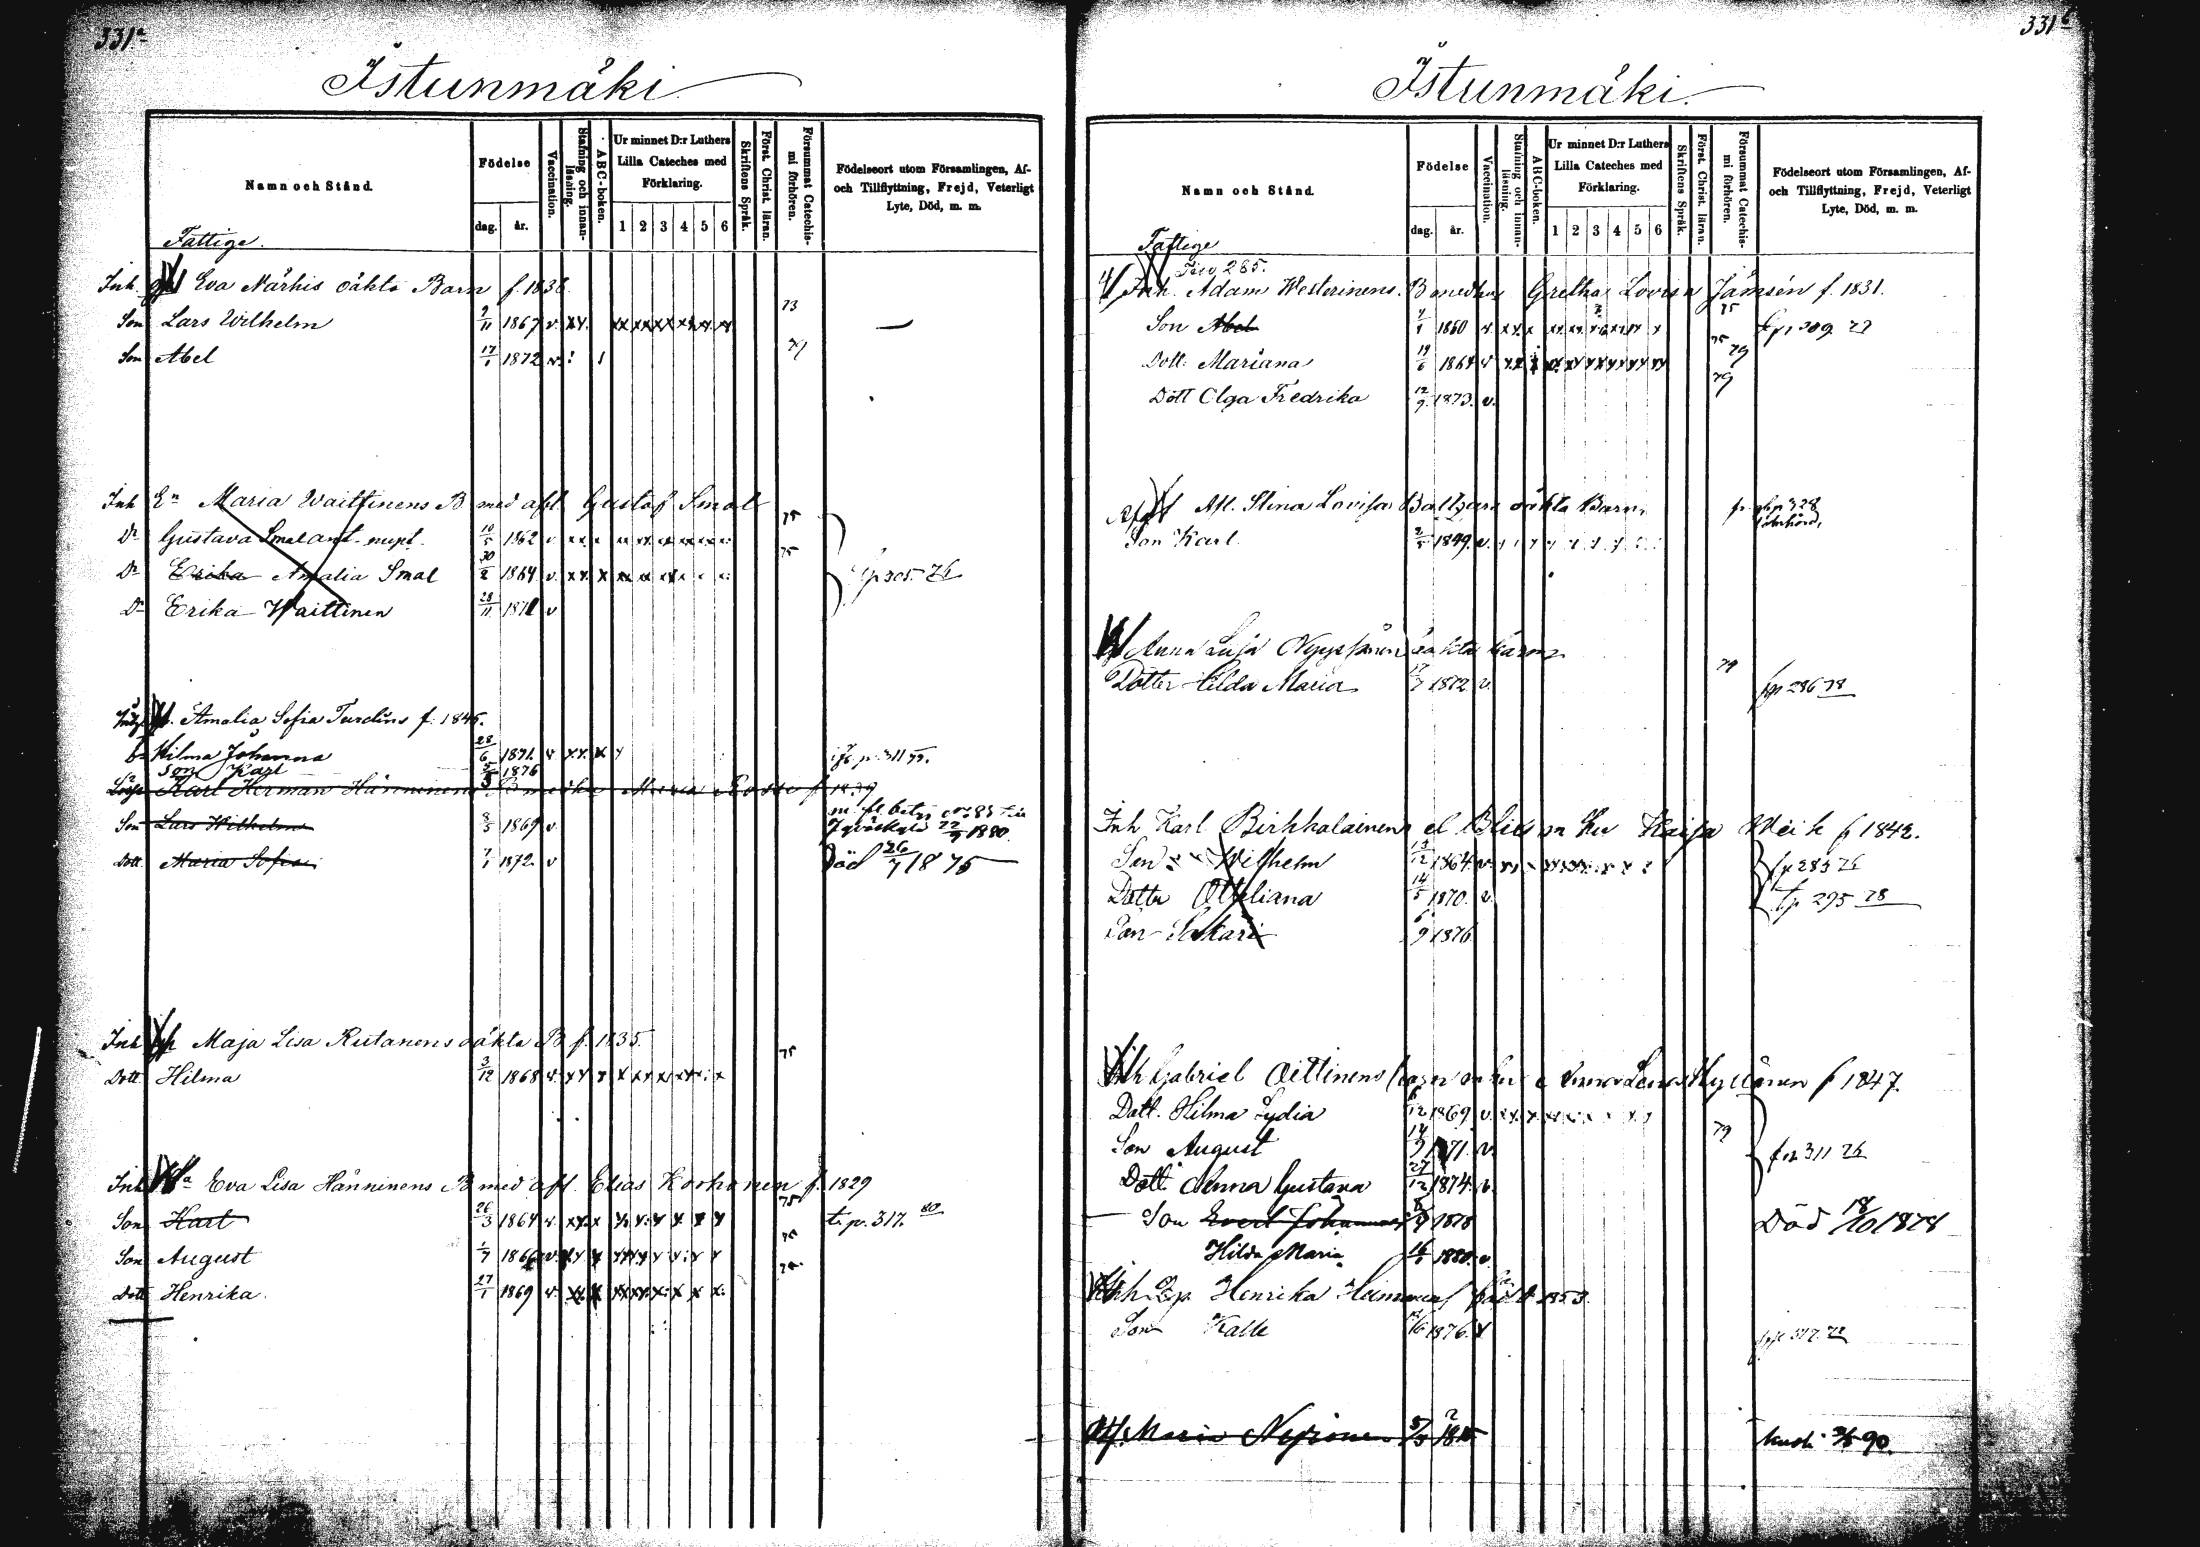 331a
Istunmäki
Namn och Stånd.
Födelse
dag.
år.
Vaccination.
Stafning och innanläsning.
ABC-boken.
Ur minnet D:r Luthers Lilla Cateches med Förklaring.
1 2 3 4 5 6
Skriftens Språk.
Först. Christ. läran.
Försummat Catechismi förhören.
Födelseort utom Församlingen, Af- och Tillflyttning, Frejd, Veterligt Lyte, Död, m. m.
Fattige.
Inh Eva Närhis oäkta Barn f. 1838
73
Son Lars Wilhelm 9/11 1867 v.
Son Abel 17/1 1872 v.
79
Inh En Maria Waittinens B med afl. Gustaf Smal
75
Dr Gustava Smal 10/5 1862
75
Dr Erika Amalia Smal 30/2 1864 v. p 305. 76
Dr Erika Waittinen 28/11 1871 v
Amalia Sofia Turdins f. 1845.
Hilma Johanna 28/6 1871. v p. 311
Son Karl 5/3 1876
Karl Herman Hänninens
Son Lars Wilhelm 8/5 1869 v. 22/9 1880.
Dott. Maria Sofia 7/1 1872. v Död 26/7 1875
Inh Maja Lisa Rutanens oäkta B f. 1835.
75
Dott. Hilma 3/12 1868 v.
Inh Eva Lisa Hänninens B med afl. Elias Korhonen f. 1829
75
Son Karl 26/3 1864 v. t. p. 317. 80
75
Son August 1/7 1866 v.
75
Dott Henrika. 27/1 1869 v.
331b
Istunmäki.
Namn och Stånd.
Födelse
dag.
år.
Vaccination.
Stafning och innanläsning.
ABC-boken.
Ur minnet D:r Luthers Lilla Cateches med Förklaring.
1 2 3 4 5 6
Skriftens Språk.
Först. Christ. läran.
Försummat Catechismi förhören.
Födelseort utom Församlingen, Af- och Tillflyttning, Frejd, Veterligt Lyte, Död, m. m.
Fattige
285.
Inh. Adam Westerinens. B med hu Gretha Lovisa Jämsén f. 1831.
75
Son Abel 1860 v. 309. 77
75 79
Dott. Mariana 19/6 1864 v
79
Dott Olga Fredrika 12/9 1873. v.
Afl. Stina Lovisa Baltzars oäkta Barn 328
Son Karl 1849. v.
Anna Lisa Nyyssönen oäkta barn
79
Dotter Hilda Maria 17/7 1872 v. 286 78
Inh Karl Birkkalainens el Blick m Hu Kaisa Weik f 1842.
Son Wilhelm 13/12 1864. v. p 283 76
Dotter Otteliana 14/5 1870. v. tp 295 78
Son Sakari 6/9 1876
Inh Gabriel Oittinens f 1847.
Dott. Hilma Lydia 1869 v.
79
Son August 14/9 1871. v. 311 76
Dott. Anna Gustava 27/12 1874. v.
Son Evert Johannes 1878 Död 18/10 1878
Hilda Maria 16/1 1880. v.
Inh Henrika född 1853.
Son Kalle 1876. 317. 79
Maria 90.